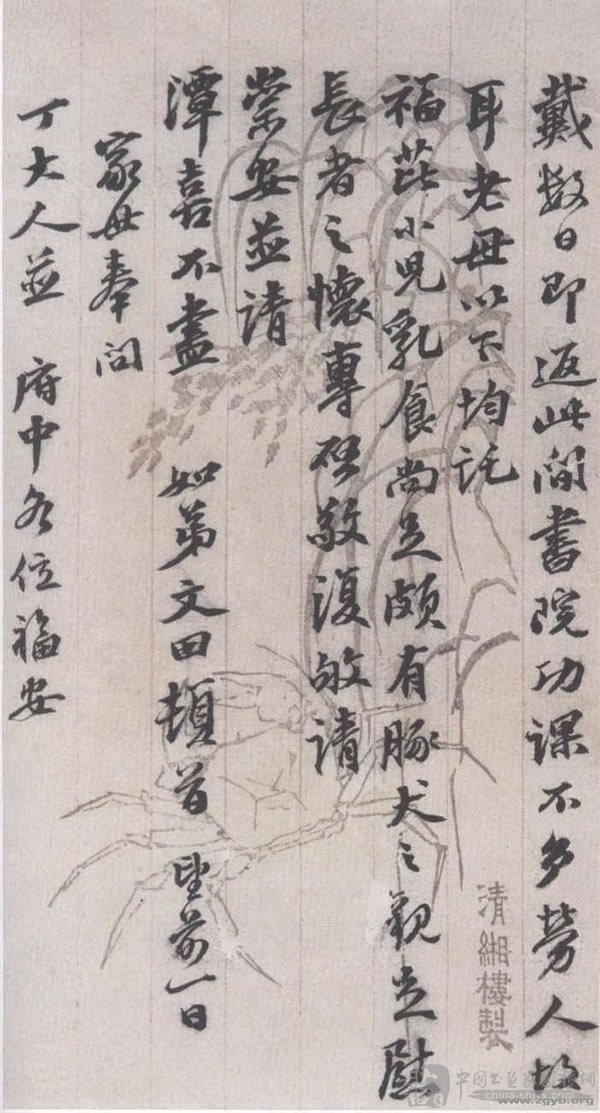 戴數日即返此間書院功課不多勞人故
耳老母以下均託
福芘小兒乳食尚足頗有豚犬之觀足慰
長者之懷專啓敬復敬請
崇安並請
潭喜不盡 如弟文田頓首 望前一日
家母奉問
丁大人並 府中各位福安
清緗樓製
www.zgyb.org